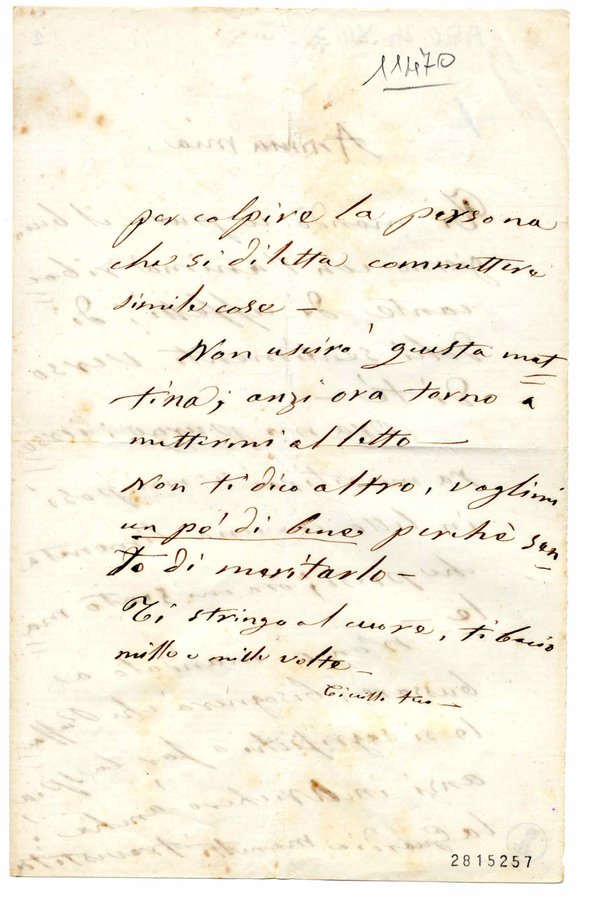 11470
per colpire la persona
che si diletta commettere
simile cose –
Non usciro' questa mat
tina; anzi ora torno a
mettermi al letto –
Non ti dico altro, vogliimi
un po' di bene perchè sen
to di meritarlo –
Ti stringo al cuore, ti bacio
mille e mille volte –
tuo –
2815257